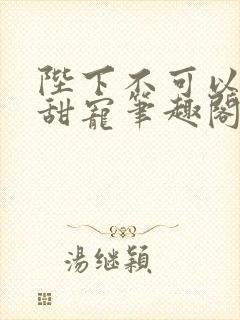 陛下不可以
甜寵筆趣閣
湯继穎